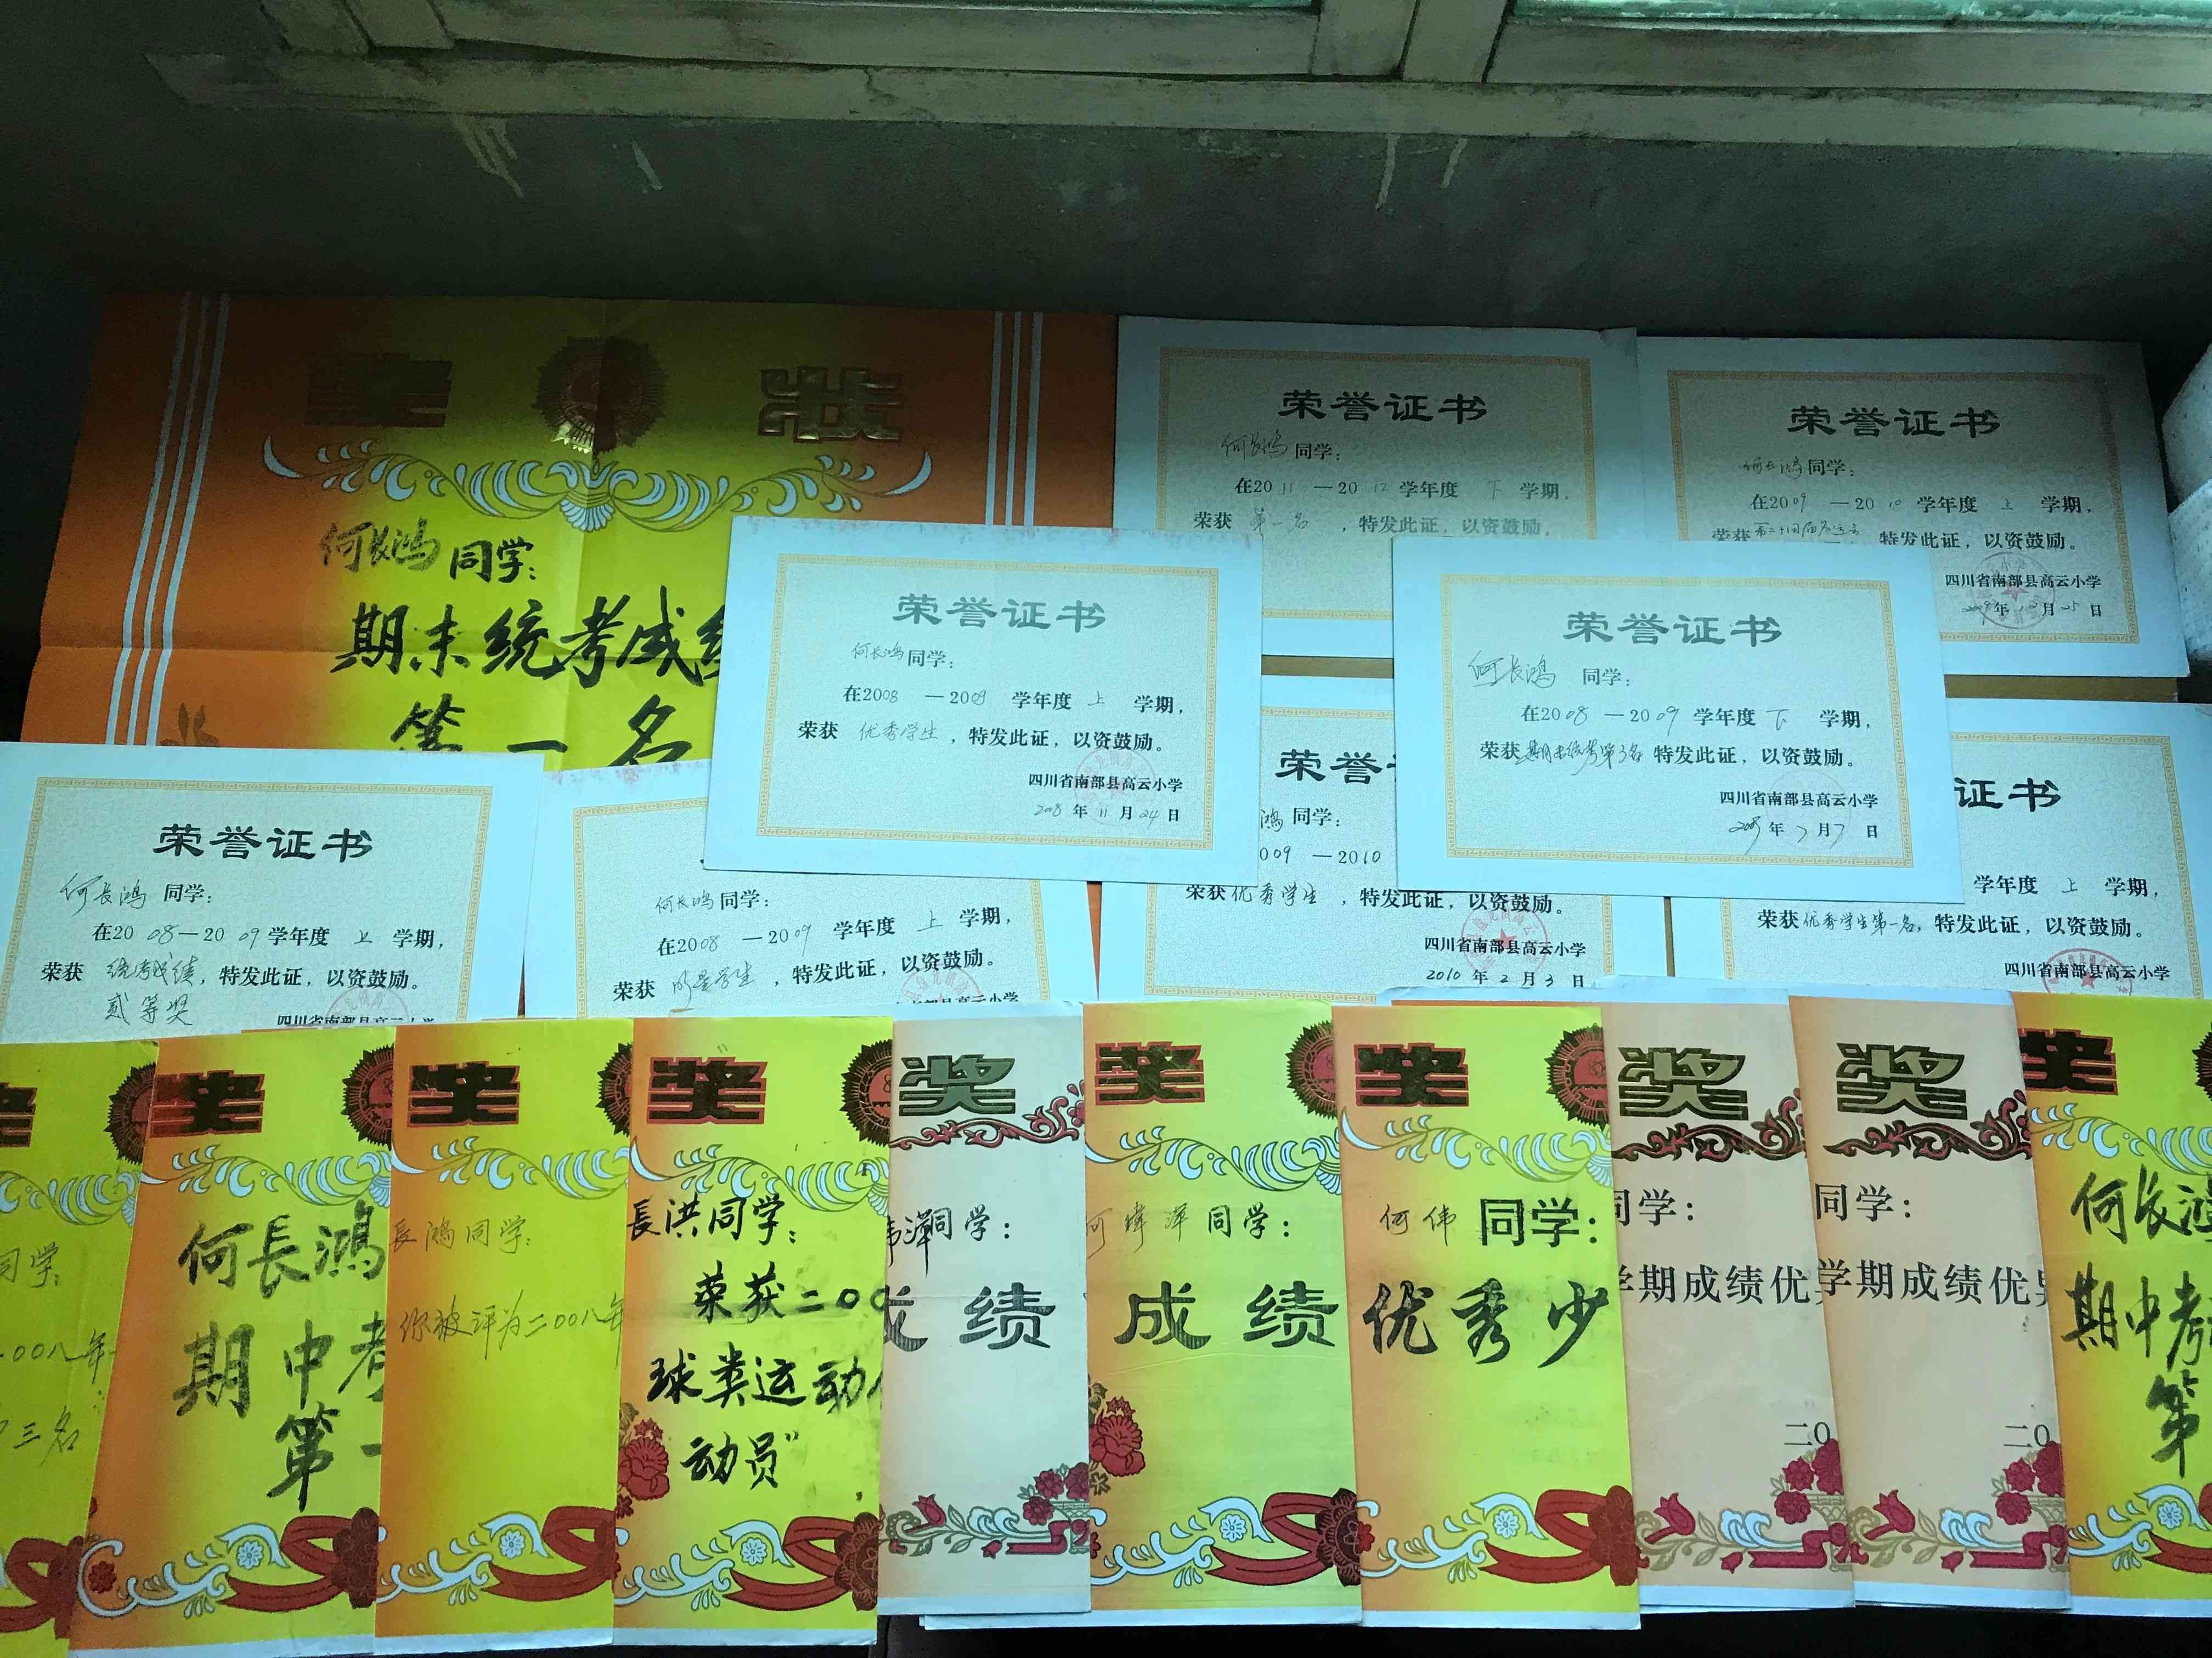 奖 状
何长鸿 同学:
期末统考成绩
第一名
荣誉证书
何长鸿 同学:
在2011—2012学年度 下 学期,
荣获 第一名 ,特发此证,以资鼓励。
荣誉证书
何长鸿 同学:
在2009—2010学年度 上 学期,
荣获 特发此证,以资鼓励。
四川省南部县高云小学
2009年12月25日
荣誉证书
何长鸿同学:
在2008—2009 学年度 上 学期,
荣获 优秀学生 ,特发此证,以资鼓励。
四川省南部县高云小学
2008 年 11 月 24 日
荣誉证书
何长鸿 同学:
在2008—2009 学年度 下 学期,
荣获期末统考第3名 特发此证,以资鼓励。
四川省南部县高云小学
2009年7月7日
荣誉证书
何长鸿 同学:
在2008—2009学年度 上 学期,
荣获 统考成绩,特发此证,以资鼓励。
贰等奖
四川省南部县高云小学
何长鸿同学:
在2008—2009 学年度 上 学期,
荣获 明星学生 ,特发此证,以资鼓励。
荣誉
鸿 同学:
009—2010
荣获优秀学生 ,特发此证,以资鼓励。
四川省南部县高云小学
2010 年 2 月 3 日
证书
学年度 上 学期,
荣获优秀学生第一名,特发此证,以资鼓励。
四川省南部县高云小学
同学:
二00八年
三名
奖
何長鸿
期中考
第一
奖
長鸿同学:
你被评为二00八年
奖
長洪同学:
荣获二00
球类运动
动员”
奖
同学:
成绩
奖
何 同学:
成绩
奖
何伟 同学:
优秀少
奖
同学:
学期成绩优
二0
奖
同学:
学期成绩优
二0
奖
何长鸿
期中考
第